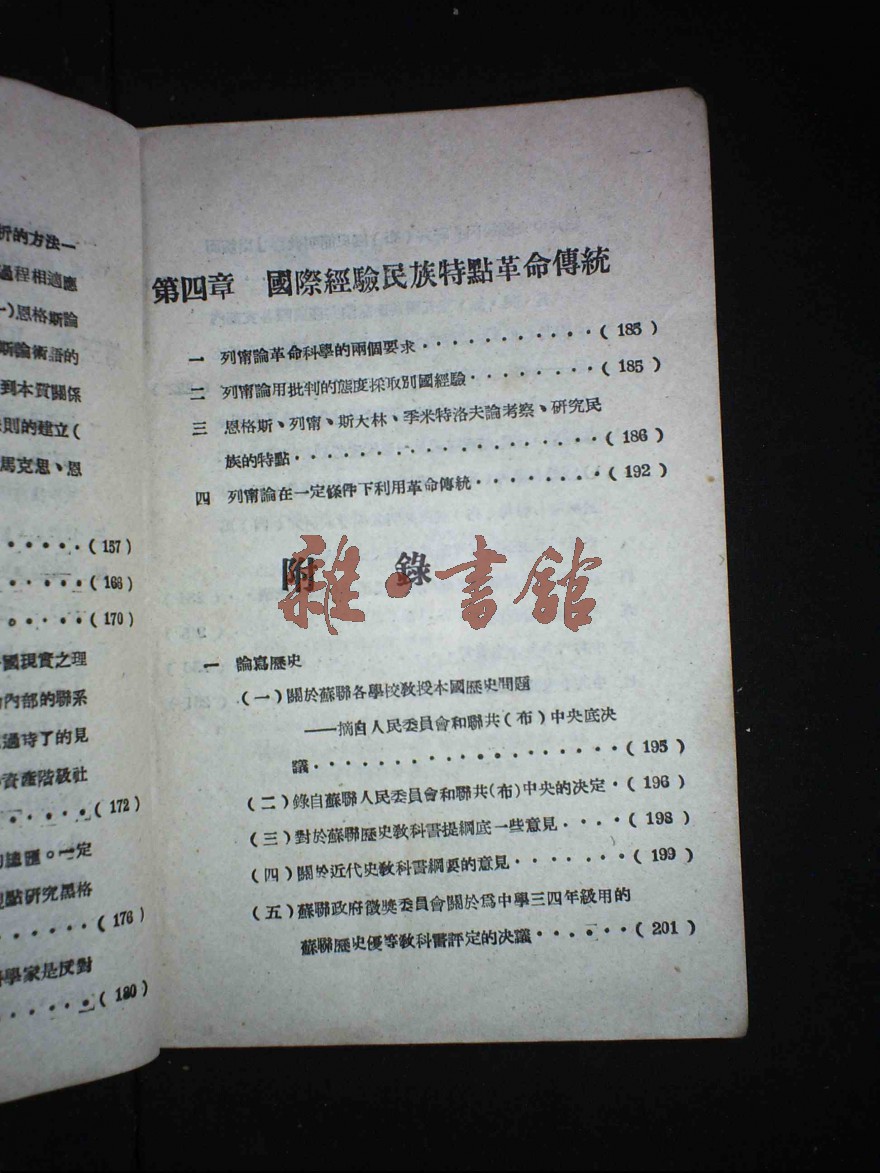 析的方法一
過程相適應
一)恩格斯論
斯論術語的
到本質關係
則的建立(
馬克思、恩
・・・・・(157)
・・・・・(166)
・・・・(170)
國現實之理
內部的聯系
過時了的見
資產階級社
・・・・・(172)
一定
點研究黑格
・・・・・(176)
學家是反對
・・・・・(180)
第四章 國際經驗民族特點革命傳統
一 列甯論革命科學的兩個要求・・・・・・・・・・・(185)
二 列甯論用批判的態度採取別國經驗・・・・・・・・(185)
三 恩格斯、列甯、斯大林、季米特洛夫論考察、研究民
族的特點・・・・・・・・・・・・・・・・・・(186)
四 列甯論在一定條件下利用革命傳統・・・・・・・・(192)
附 錄
雜・書館
一 論寫歷史
(一)關於蘇聯各學校敎授本國歷史問題
——摘自人民委員會和聯共(布)中央底决
議・・・・・・・・・・・・・・・・・・(195)
(二)錄自蘇聯人民委員會和聯共(布)中央的決定・(196)
(三)對於蘇聯歷史敎科書提綱底一些意見・・・・(198)
(四)關於近代史敎科書綱要的意見・・・・・・・(199)
(五)蘇聯政府徵獎委員會關於爲中學三四年級用的
蘇聯歷史優等敎科書評定的决議・・・・・・(201)